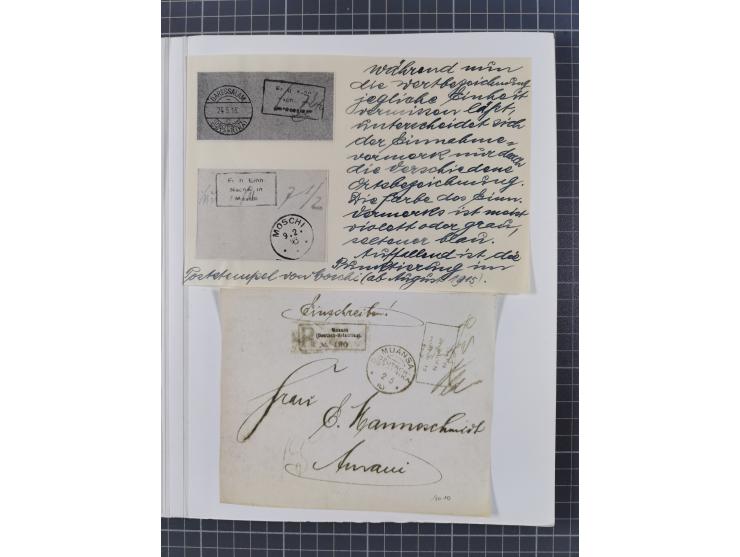 DARESSALAM
24.5.16
Während nun
die Wertbezeichnung
jegliche Einheit
vermissen läßt,
unterscheidet sich
der Einnahme-
vermerk nur durch
die verschiedene
Ortsbezeichnung.
Die Farbe des Einn.
Vermerks ist meist
violett oder grau,
seltener blau.
Auffallend ist die
Punktierung im
Poststempel von Moschi (ab August 1915).
Fr. n. Einn.
Nachw. in
Moschi
7 1/2
MOSCHI
9.2.
Einschreiben!
R
Muansa
(Deutsch-Ostafrika)
№ 190
MUANSA
2 5
Frau
E. Mannoschmidt
Amani